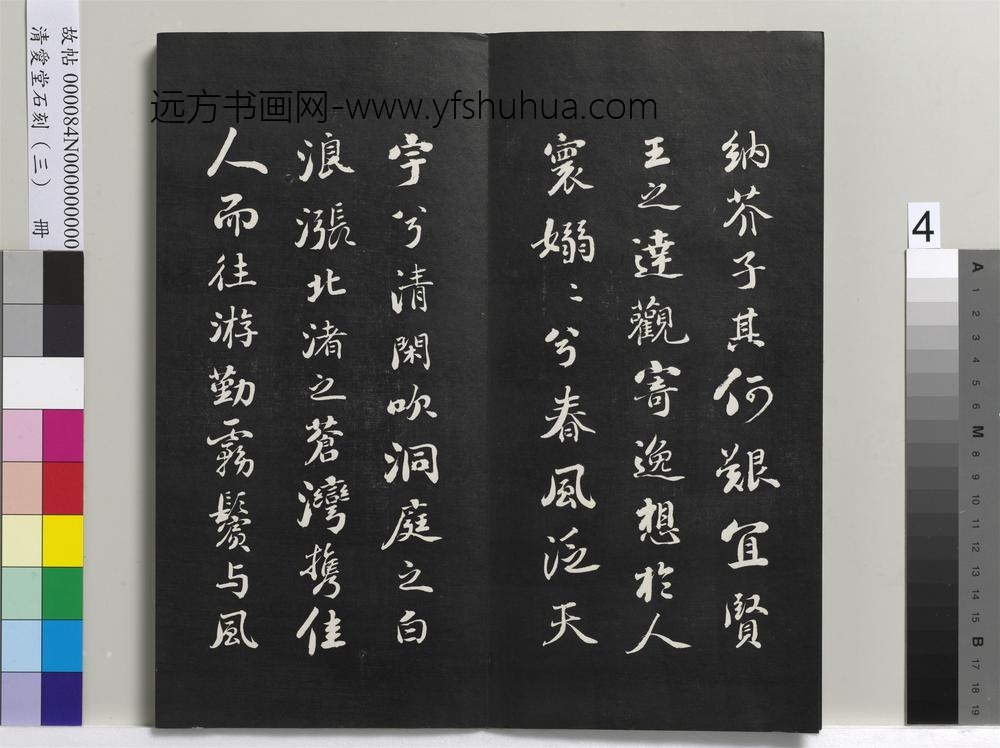 納芥子其何艱宜賢
王之達觀寄逸想於人
寰嫋〻兮春風泛天
宇兮清閑吹洞庭之白
浪漲北渚之蒼灣攜佳
人而往游勤霧鬢与風
远方书画网-www.yfshuhua.com
故帖 000084N000000000
清愛堂石刻(三) 冊
4
A
1
2
3
4
5
6
M
8
9
10
11
12
13
14
15
B
17
18
19